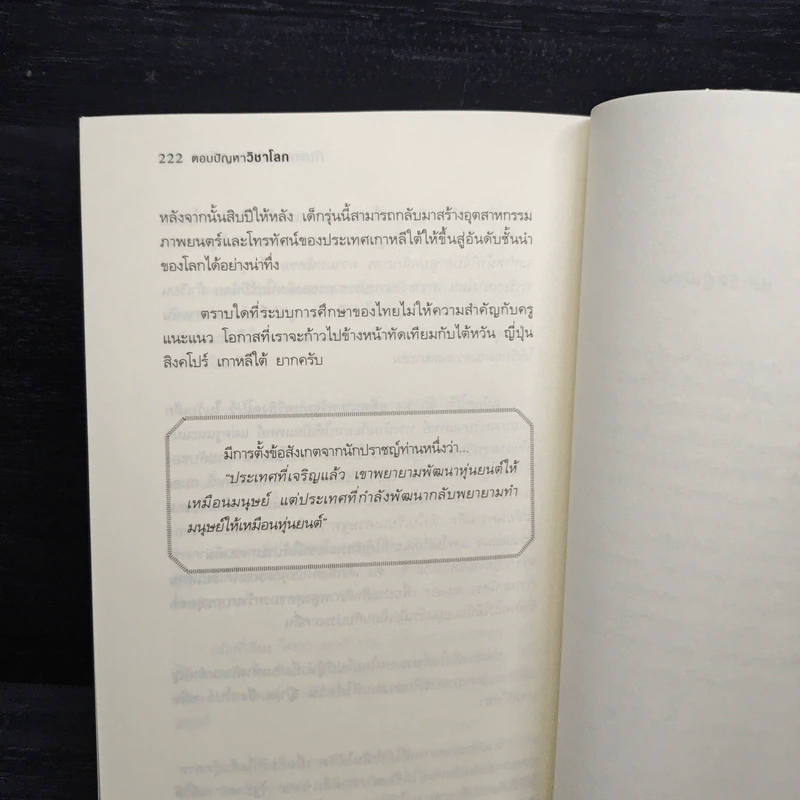 222 ตอบปัญหาวิชาโลก
หลังจากนั้นสิบปีให้หลัง เด็กรุ่นนี้สามารถกลับมาสร้างอุตสาหกรรม
ภาพยนตร์และโทรทัศน์ของประเทศเกาหลีใต้ให้ขึ้นสู่อันดับชั้นนำ
ของโลกได้อย่างน่าทึ่ง
ตราบใดที่ระบบการศึกษาของไทยไม่ให้ความสำคัญกับครู
แนะแนว โอกาสที่เราจะก้าวไปข้างหน้าทัดเทียมกับไต้หวัน ญี่ปุ่น
สิงคโปร์ เกาหลีใต้ ยากครับ
มีการตั้งข้อสังเกตจากนักปราชญ์ท่านหนึ่งว่า...
"ประเทศที่เจริญแล้ว เขาพยายามพัฒนาหุ่นยนต์ให้
เหมือนมนุษย์ แต่ประเทศที่กำลังพัฒนากลับพยายามทำ
มนุษย์ให้เหมือนหุ่นยนต์"